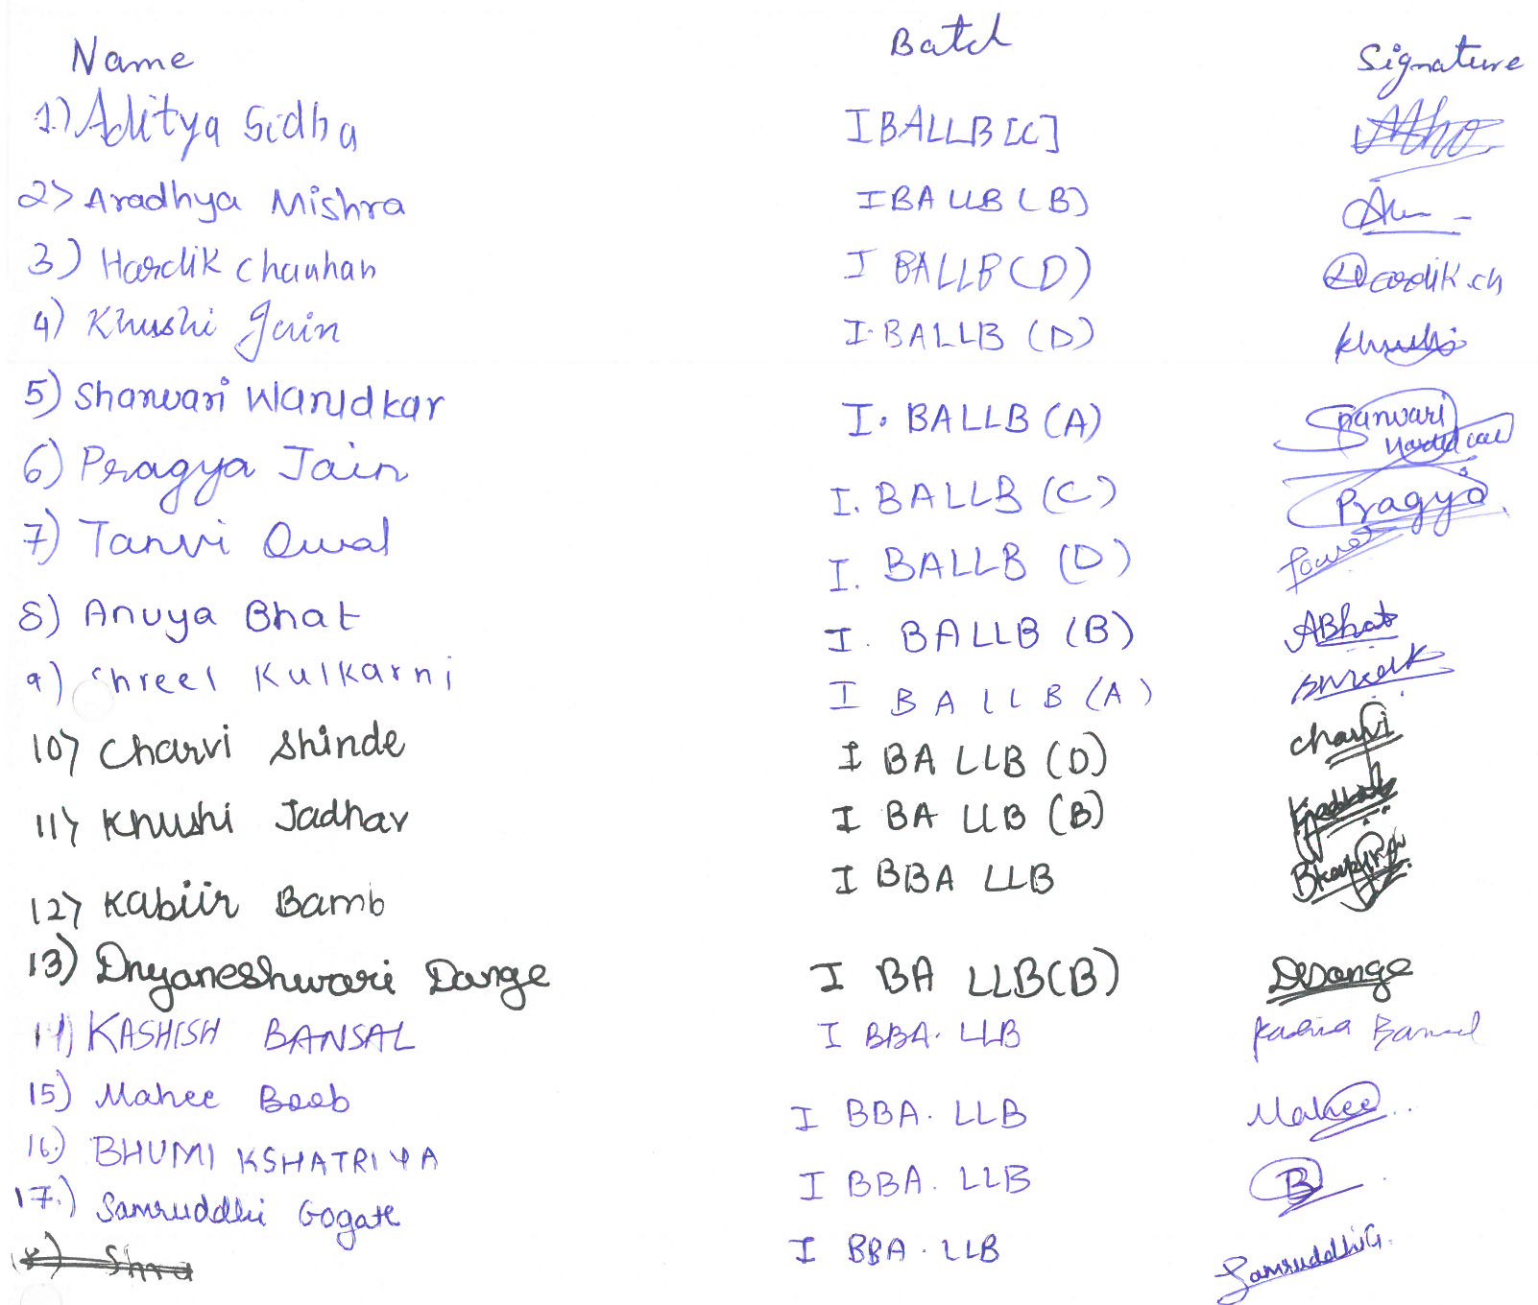 Name Batch Signature
1.) Aditya Sidha I BALLB [C]
2> Aradhya Mishra I BA LLB (B)
3) Hardik Chauhan I BALLB (D) Hardik.ch
4) Khushi Jain I. BALLB (D) Khushi
5) Sharwari Warudkar I. BALLB (A) Sharwari Warudkar
6) Pragya Jain I. BALLB (C) Pragya
7) Tanvi Oswal I. BALLB (D)
8) Anuya Bhat I. BALLB (B) ABhat
9) Shreel Kulkarni I BALLB (A)
10> Charvi Shinde I BA LLB (D) Charvi
11> Khushi Jadhav I BA LLB (B) KJadhav
12> Kabiir Bamb I BBA LLB
13) Dnyaneshwari Dange I BA LLB (B) DDange
14) KASHISH BANSAL I BBA. LLB Bansal
15) Mahee Boob I BBA. LLB Mahee
16.) BHUMI KSHATRIYA I BBA. LLB B
17.) Samruddhi Gogate I BBA. LLB SamruddhiG.